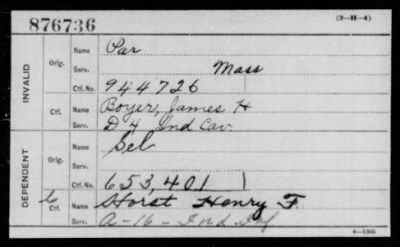 876736
(3-H-4)
INVALID
Orig.
Name Par
Serv. Mass
Ctf. No. 944726
Ctf.
Name Boyer, James H
Serv. D 4 Ind Cav.
DEPENDENT
Orig.
Name Sel
Serv.
Ctf. No. 653,401
C Ctf.
Name Horst Henry F.
Serv. A-16-Ind Inf